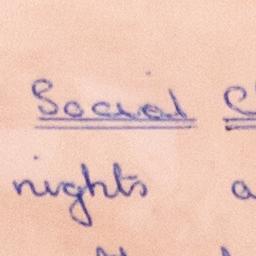 Social C
nights a